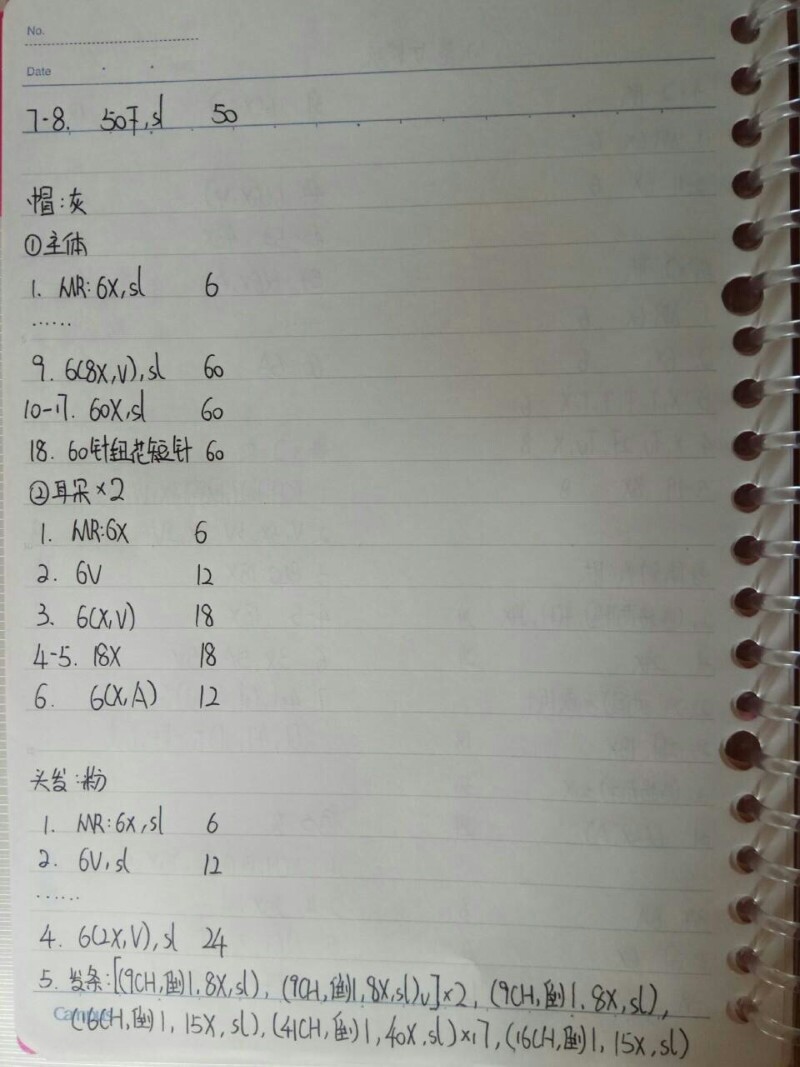 No.
Date
7-8. 50F,sl 50
帽:灰
①主体
1. MR:6X,sl 6
……
9. 6(8X,V),sl 60
10-17. 60X,sl 60
18. 60针纽花短针 60
②耳朵×2
1. MR:6X 6
2. 6V 12
3. 6(X,V) 18
4-5. 18X 18
6. 6(X,A) 12
头发:粉
1. MR:6X,sl 6
2. 6V,sl 12
……
4. 6(2X,V),sl 24
5. 发条:[(9CH,倒1,8X,sl),(9CH,倒1,8X,sl)v]×2,(9CH,倒1,8X,sl),
Campus
(16CH,倒1,15X,sl),(41CH,倒1,40X,sl)×17,(16CH,倒1,15X,sl)